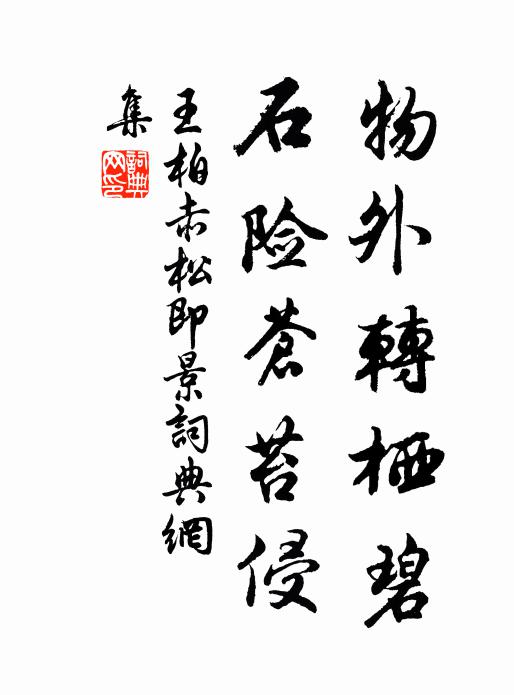 物外轉栖碧
石险蒼苔侵
王柏赤松即景詞典網
集
詞典
网印